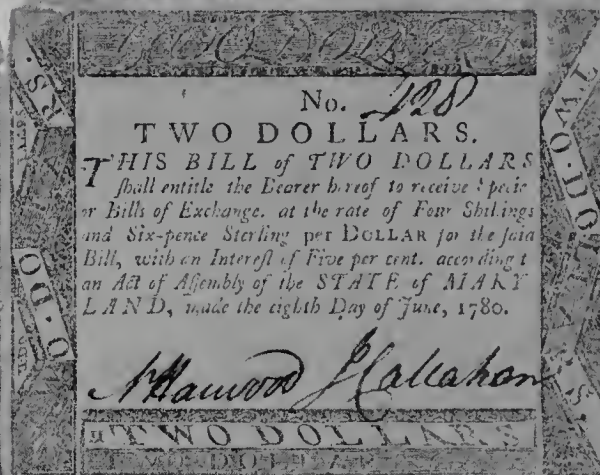 TWO DOLLARS
No. 2128
TWO DOLLARS.
THIS BILL of TWO DOLLARS
ſhall entitle the Bearer hereof to receive Specie
or Bills of Exchange. at the rate of Four Shillings
and Six-pence Sterling per DOLLAR for the ſaid
Bill, with an Intereſt of Five per cent. according t
an Act of Aſſembly of the STATE of MARY
LAND, made the eighth Day of June, 1780.
N Harwood J Callahan
TWO DOLLARS